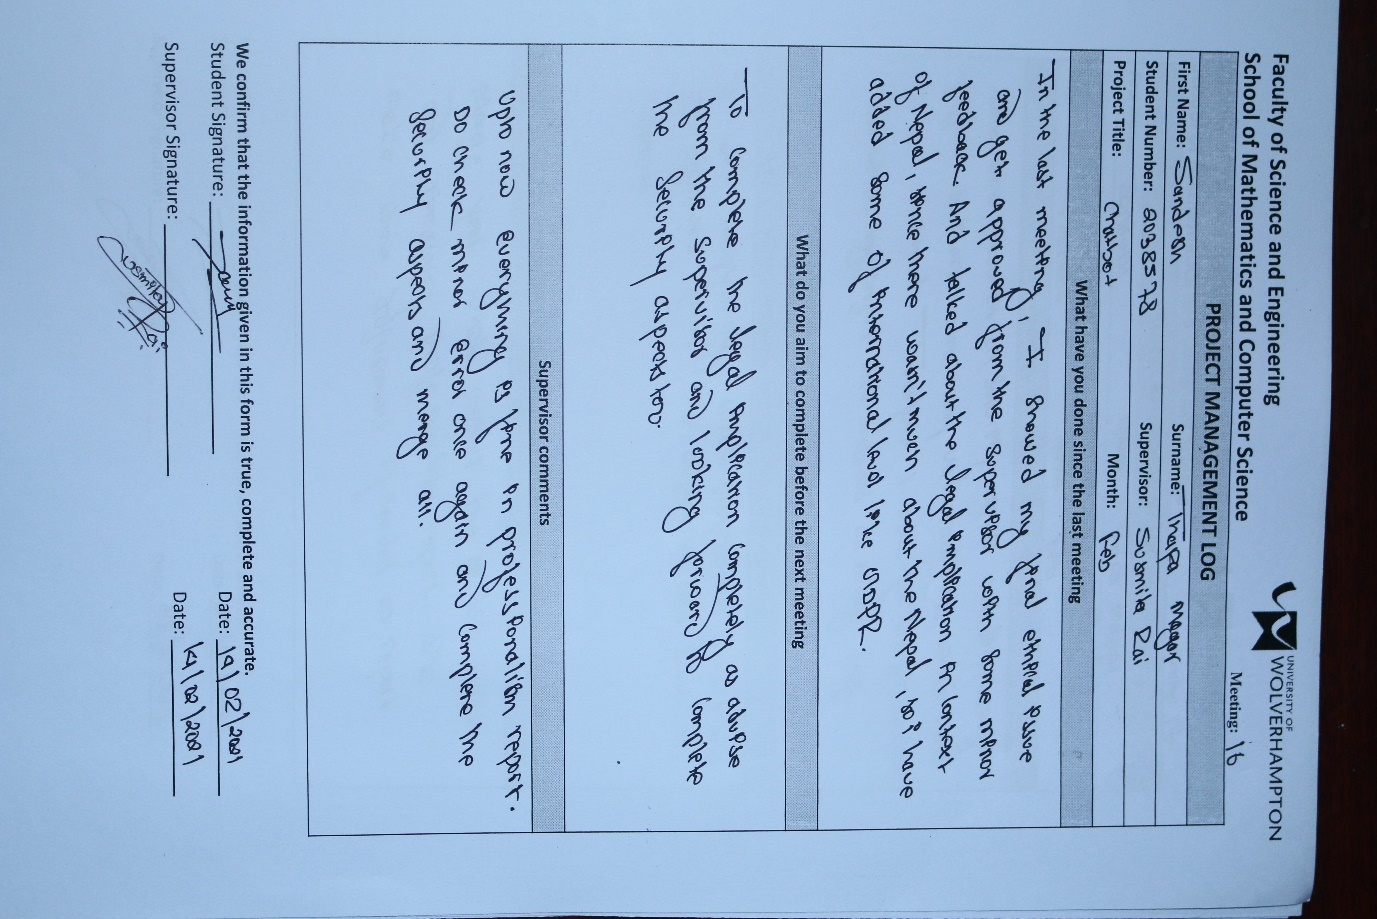 Faculty of Science and Engineering
School of Mathematics and Computer Science
UNIVERSITY OF
WOLVERHAMPTON
Meeting: 16
PROJECT MANAGEMENT LOG
First Name: Sandesh Surname: Thapa Magar
Student Number: 2038578 Supervisor: Susmita Rai
Project Title: Chatbot Month: Feb
What have you done since the last meeting
- In the last meeting, I showed my final ethical issue
and get approved from the supervisor with some minor
feedback. And talked about the legal implication in context
of Nepal, since there wasn't much about the Nepal, so i have
added some of international level like GDPR.
What do you aim to complete before the next meeting
- To complete the legal implication completely as advise
from the supervisor and looking forward to complete
the security aspects too.
Supervisor comments
Upto now everything is fine in professionalism report.
Do check minor error once again and complete the
security aspects and merge all.
We confirm that the information given in this form is true, complete and accurate.
Student Signature: Date: 14/02/2021
Supervisor Signature: Date: 14/02/2021